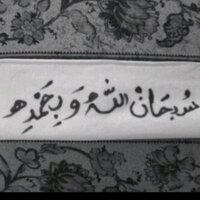 سُبحَانَ اللّٰهُ وَ بِحَمْدِهِ